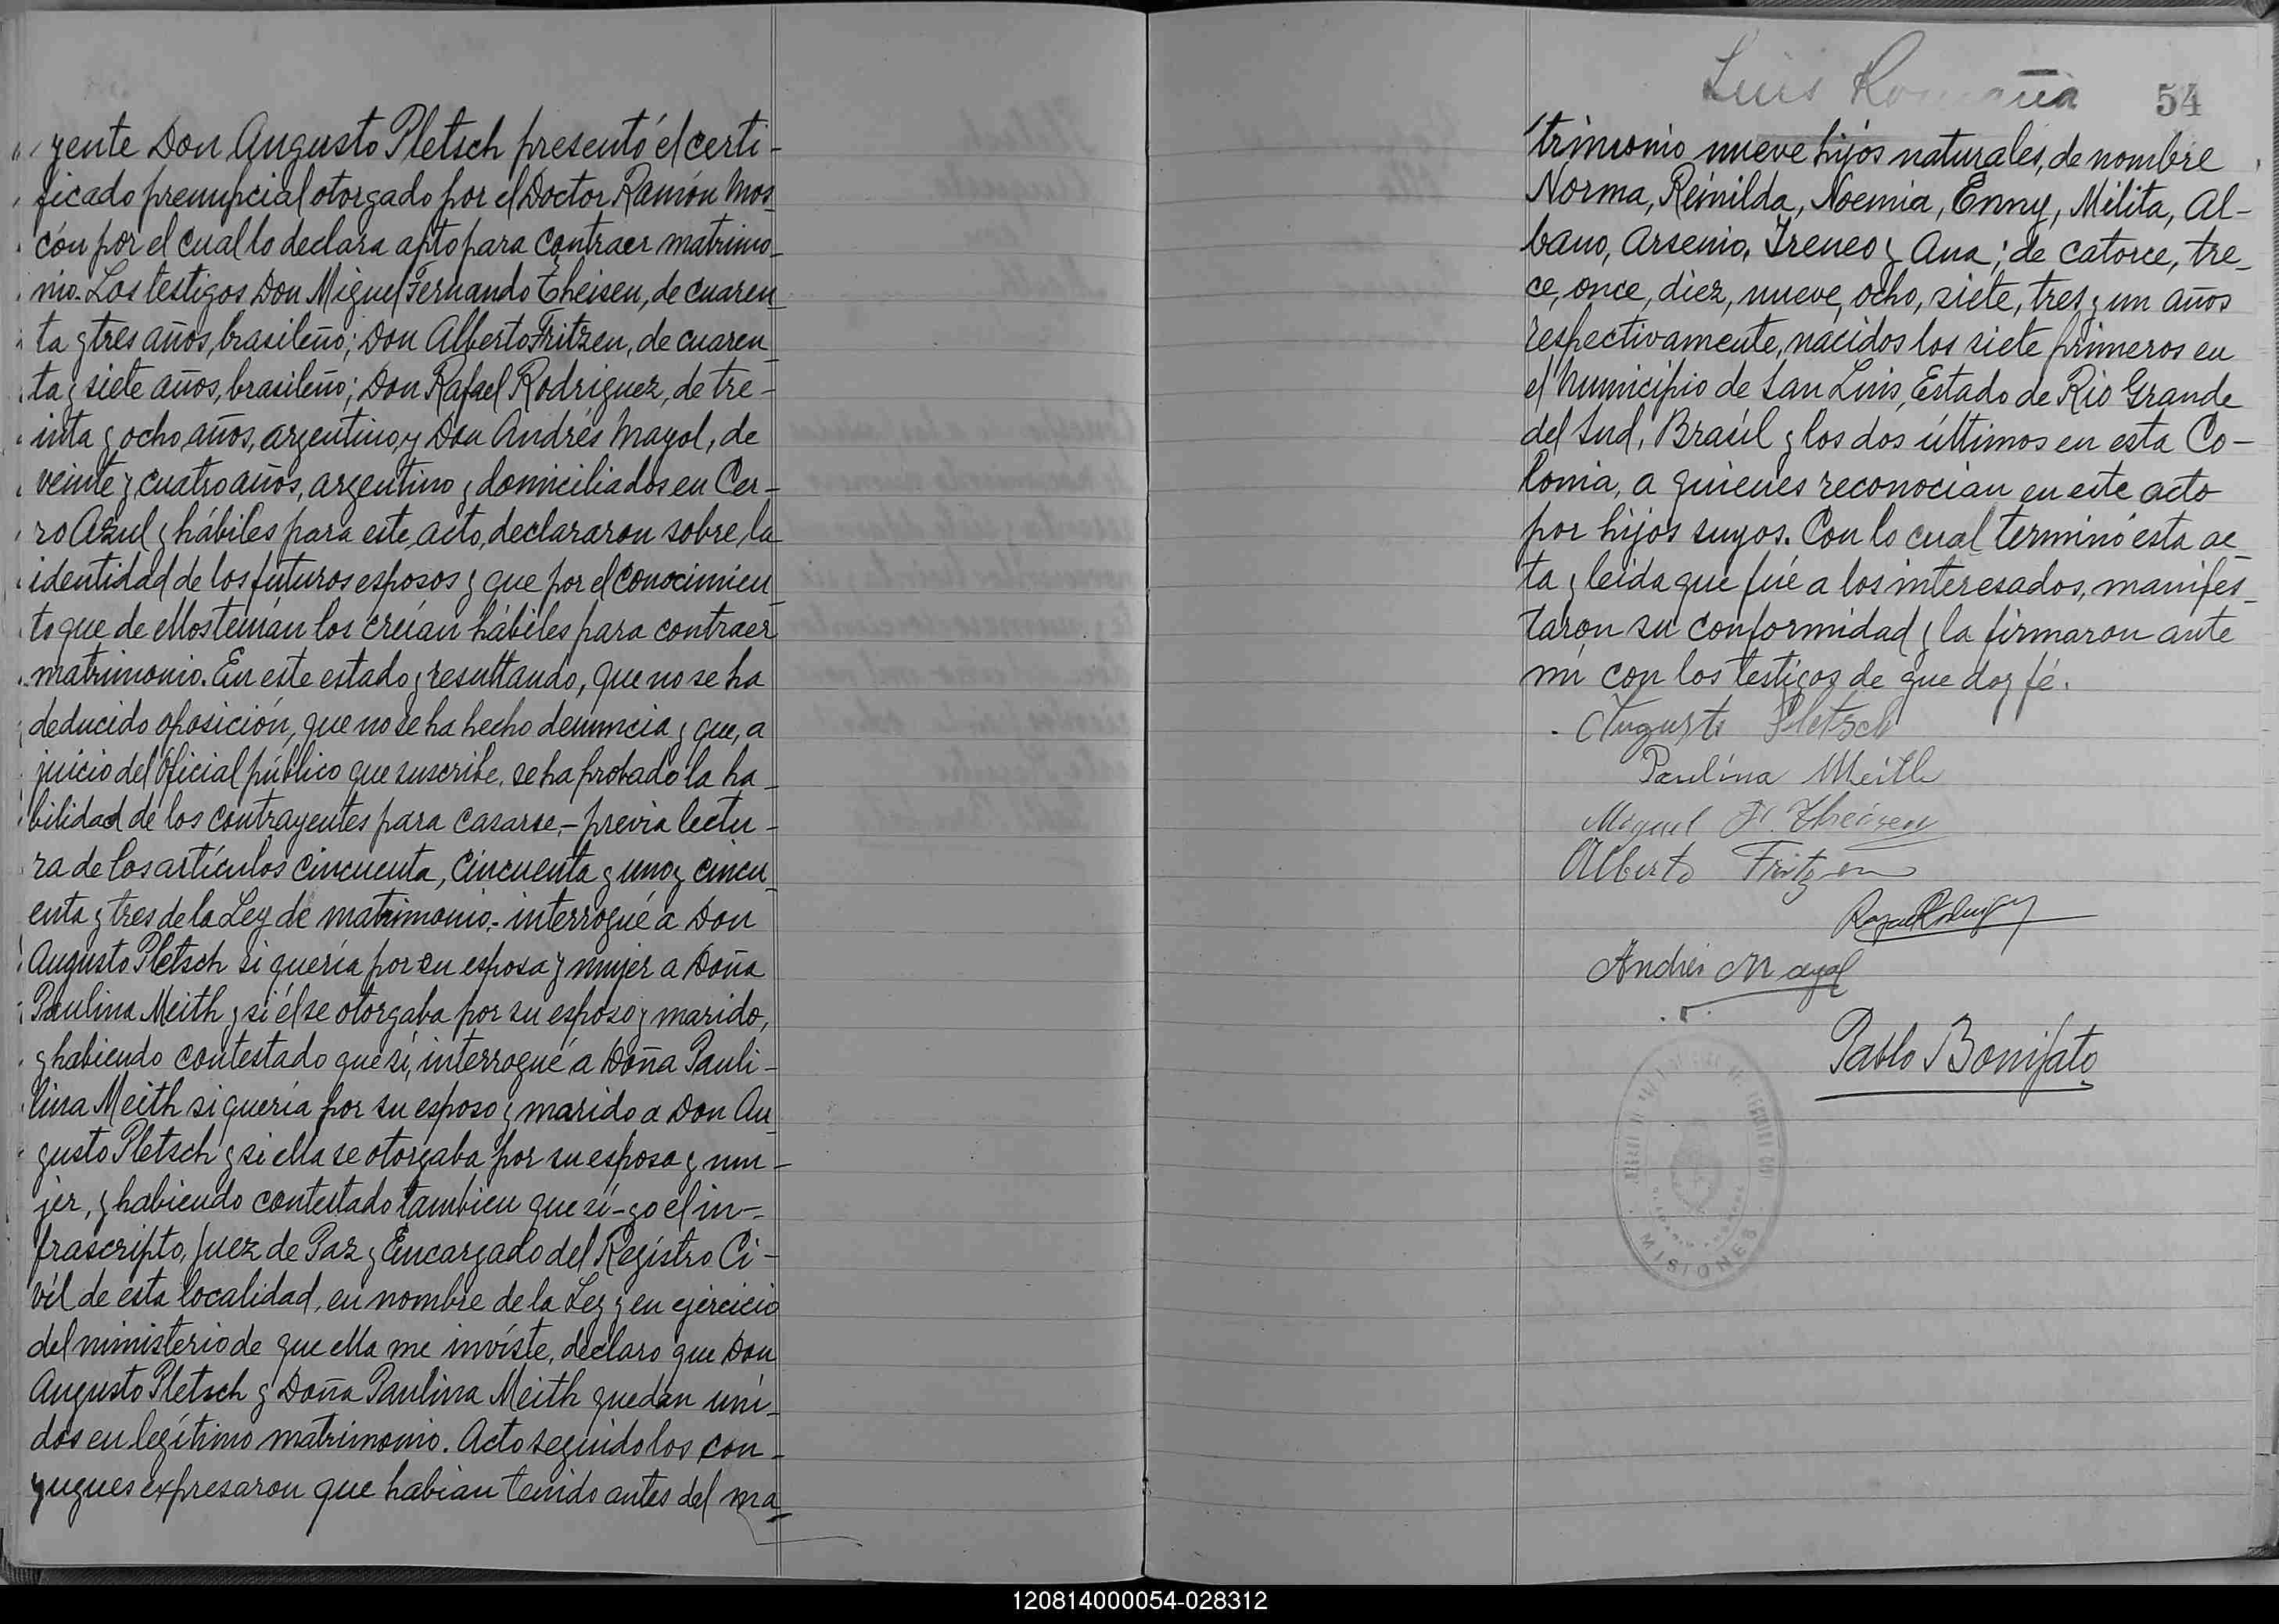 yente Don Augusto Pletsch presentó el certi-
ficado prenupcial otorgado por el Doctor Ramón Mos-
cón por el cual lo declara apto para contraer matrimo-
nio. Los testigos Don Miguel Fernando Theisen, de cuaren-
ta y tres años, brasileño; Don Alberto Fritzen, de cuaren-
ta y siete años, brasileño; Don Rafael Rodriguez, de tre-
inta y ocho años, argentino y Don Andrés Mayol, de
veinte y cuatro años, argentino y domiciliados en Cer-
ro Azul y hábiles para este acto, declararon sobre la
identidad de los futuros esposos y que por el conocimien-
to que de ellos tenían los creían hábiles para contraer
matrimonio. En este estado y resultando, que no se ha
deducido oposición, que no se ha hecho denuncia y que, a
juicio del Oficial público que suscribe, se ha probado la ha-
bilidad de los contrayentes para casarse,- previa lectu-
ra de los artículos cincuenta, cincuenta y uno y cincu-
enta y tres de la Ley de matrimonio.- interrogué a Don
Augusto Pletsch si quería por su esposa y mujer a Doña
Paulina Meith y si él se otorgaba por su esposo y marido,
y habiendo contestado que sí, interrogué a Doña Pauli-
lina Meith si quería por su esposo y marido a Don Au-
gusto Pletsch y si ella se otorgaba por su esposa y mu-
jer, y habiendo contestado tambien que sí-yo el in-
frascripto, Juez de Paz y Encargado del Registro Ci-
vil de esta localidad, en nombre de la Ley y en ejercicio
del ministerio de que ella me inviste, declaro que Don
Augusto Pletsch y Doña Paulina Meith quedan uni-
dos en legítimo matrimonio. Acto seguido los con-
yugues expresaron que habian tenido antes del ma-
Luis
54
trimonio nueve hijos naturales, de nombre
Norma, Reinilda, Noemia, Enny, Milita, Al-
bano, Arsenio, Ireneo y Ana; de catorce, tre-
ce, once, diez, nueve, ocho, siete, tres y un años
respectivamente, nacidos los siete primeros en
el Municipio de San Luis, Estado de Rio Grande
del Sud, Brasil y los dos últimos en esta Co-
lonia, a quienes reconocian en este acto
por hijos suyos. Con lo cual terminó esta ac-
ta y leida que fué a los interesados, manifes-
taron su conformidad y la firmaron ante
mi con los testigos de que doy fé.
Augusto Pletsch
Paulina Meith
Miguel F. Theisen
Alberto Fritzen
Andrés Mayol
Pablo Bonifato
MISIONES
120814000054-028312